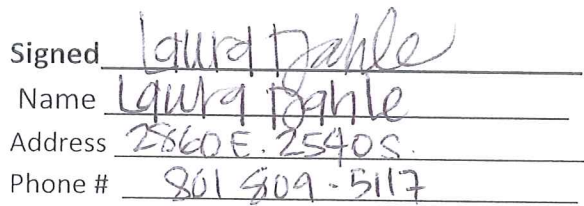 Signed Laura Dahle
Name Laura Dahle
Address 2860 E. 2540 S.
Phone # 801 809-5117